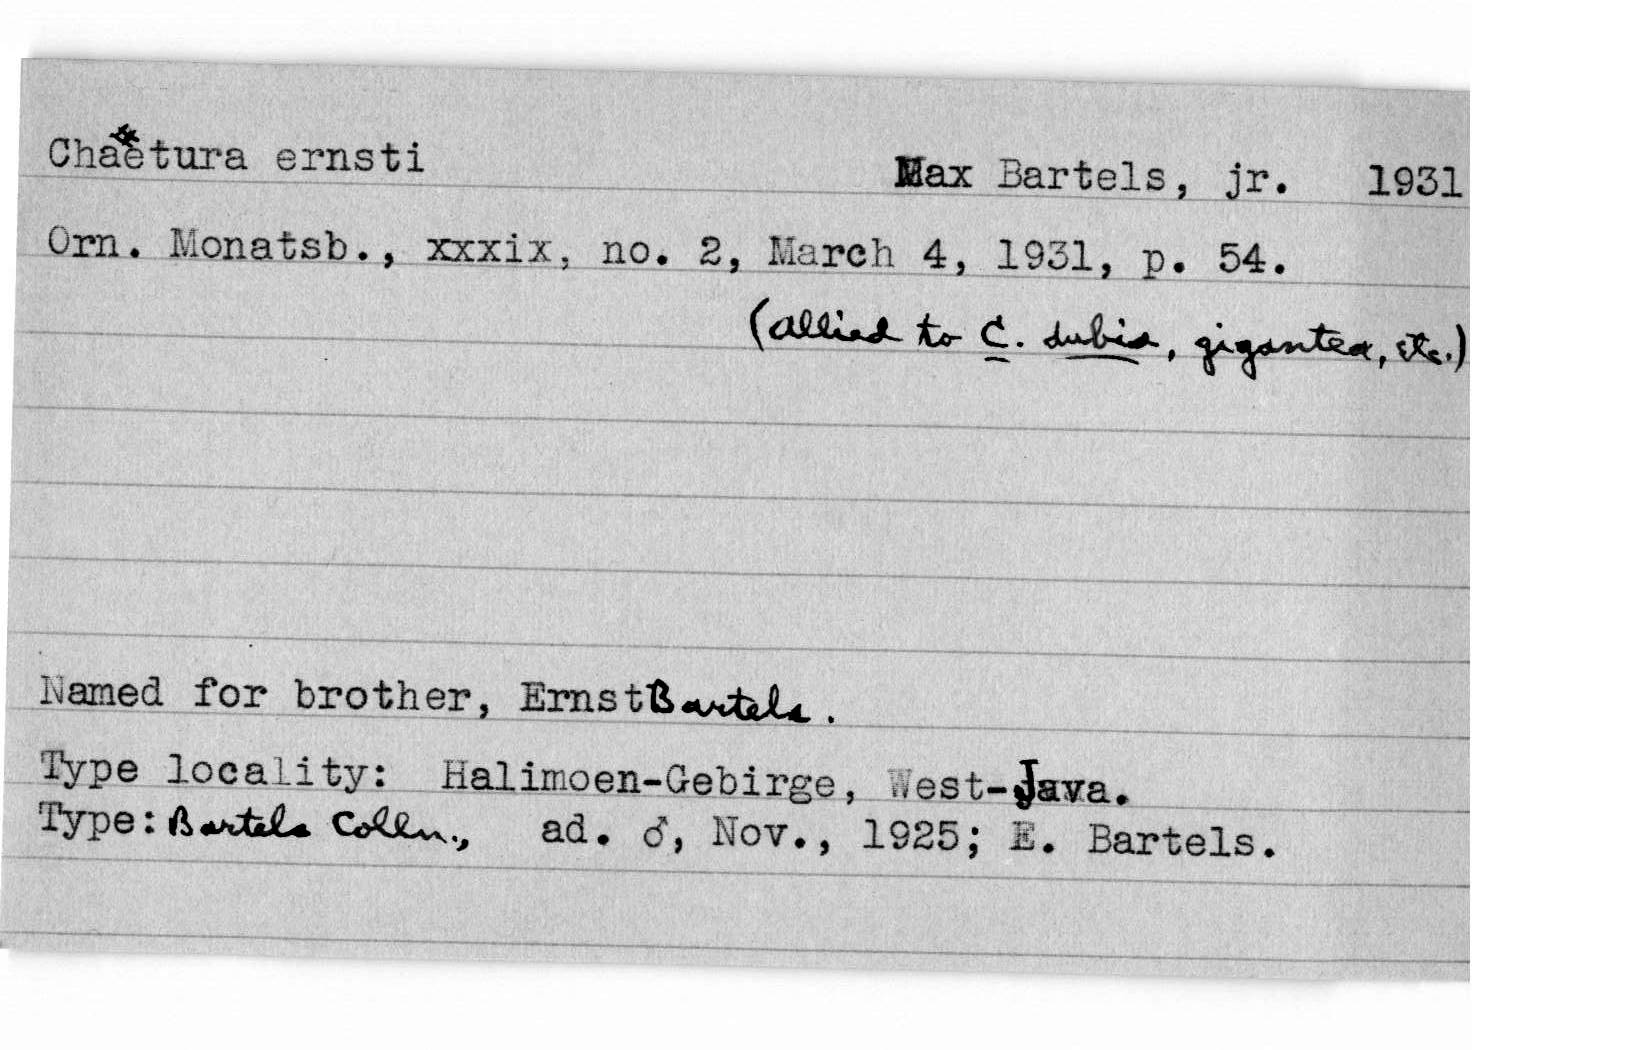 Chaetura ernsti Max Bartels, jr. 1931
Orn. Monatsb., xxxix, no. 2, March 4, 1931, p. 54.
(allied to C. dubia, gigantea, etc.)
Named for brother, Ernst Bartels.
Type locality: Halimoen-Gebirge, West-Java.
Type: Bartels Colln., ad. ♂, Nov., 1925; E. Bartels.